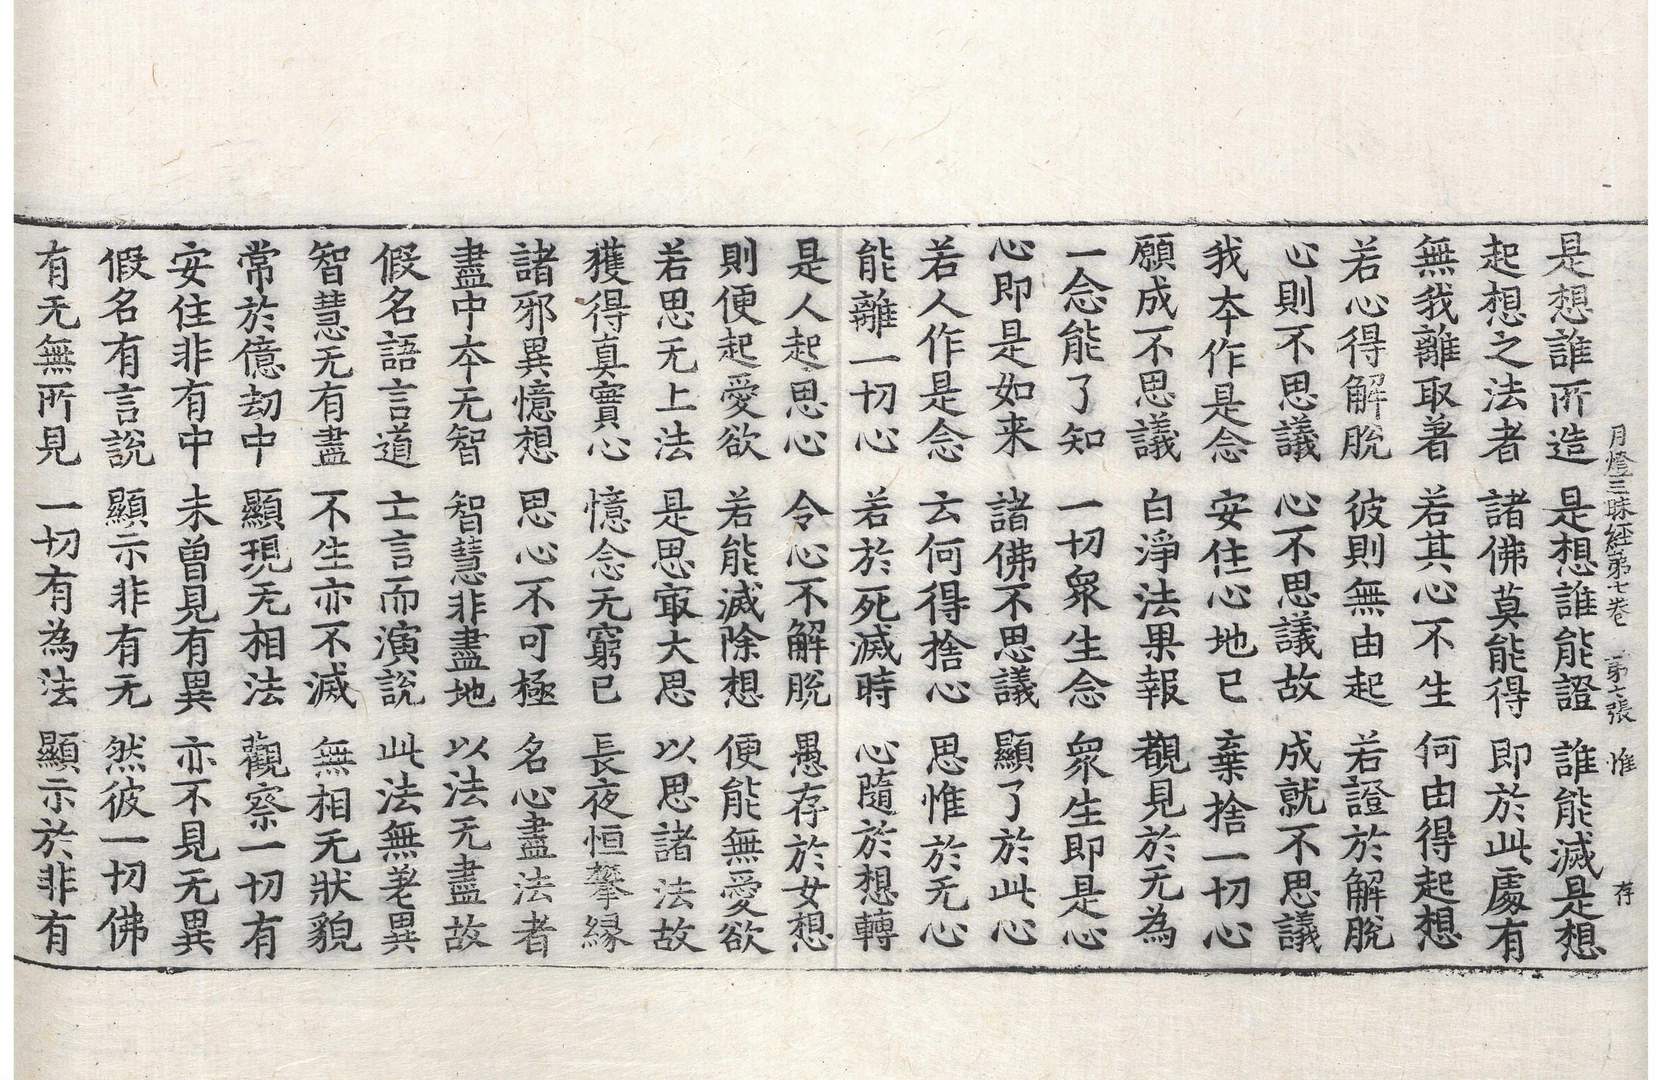 月燈三昧經第七卷　第七張　惟　存
是想誰所造　是想誰能證　誰能滅是想
起想之法者　諸佛莫能得　即於此處有
無我離取著　若其心不生　何由得起想
若心得解脫　彼則無由起　若證於解脫
心則不思議　心不思議故　成就不思議
我本作是念　安住心地已　棄捨一切心
願成不思議　白淨法果報　覩見於无為
一念能了知　一切衆生念　衆生即是心
心即是如来　諸佛不思議　顯了於此心
若人作是念　云何得捨心　思惟於无心
能離一切心　若於死滅時　心隨於想轉
是人起思心　令心不解脫　愚存於女想
則便起愛欲　若能滅除想　便能無愛欲
若思无上法　是思冣大思　以思諸法故
獲得真實心　憶念无窮已　長夜恒攀縁
諸邪異憶想　思心不可極　名心盡法者
盡中本无智　智慧非盡地　以法无盡故
假名語言道　士言而演說　此法無差異
智慧无有盡　不生亦不滅　無相无狀貌
常於億劫中　顯現无相法　觀察一切有
安住非有中　未曾見有異　亦不見无異
假名有言說　顯示非有无　然彼一切佛
有无無所見　一切有為法　顯示於非有